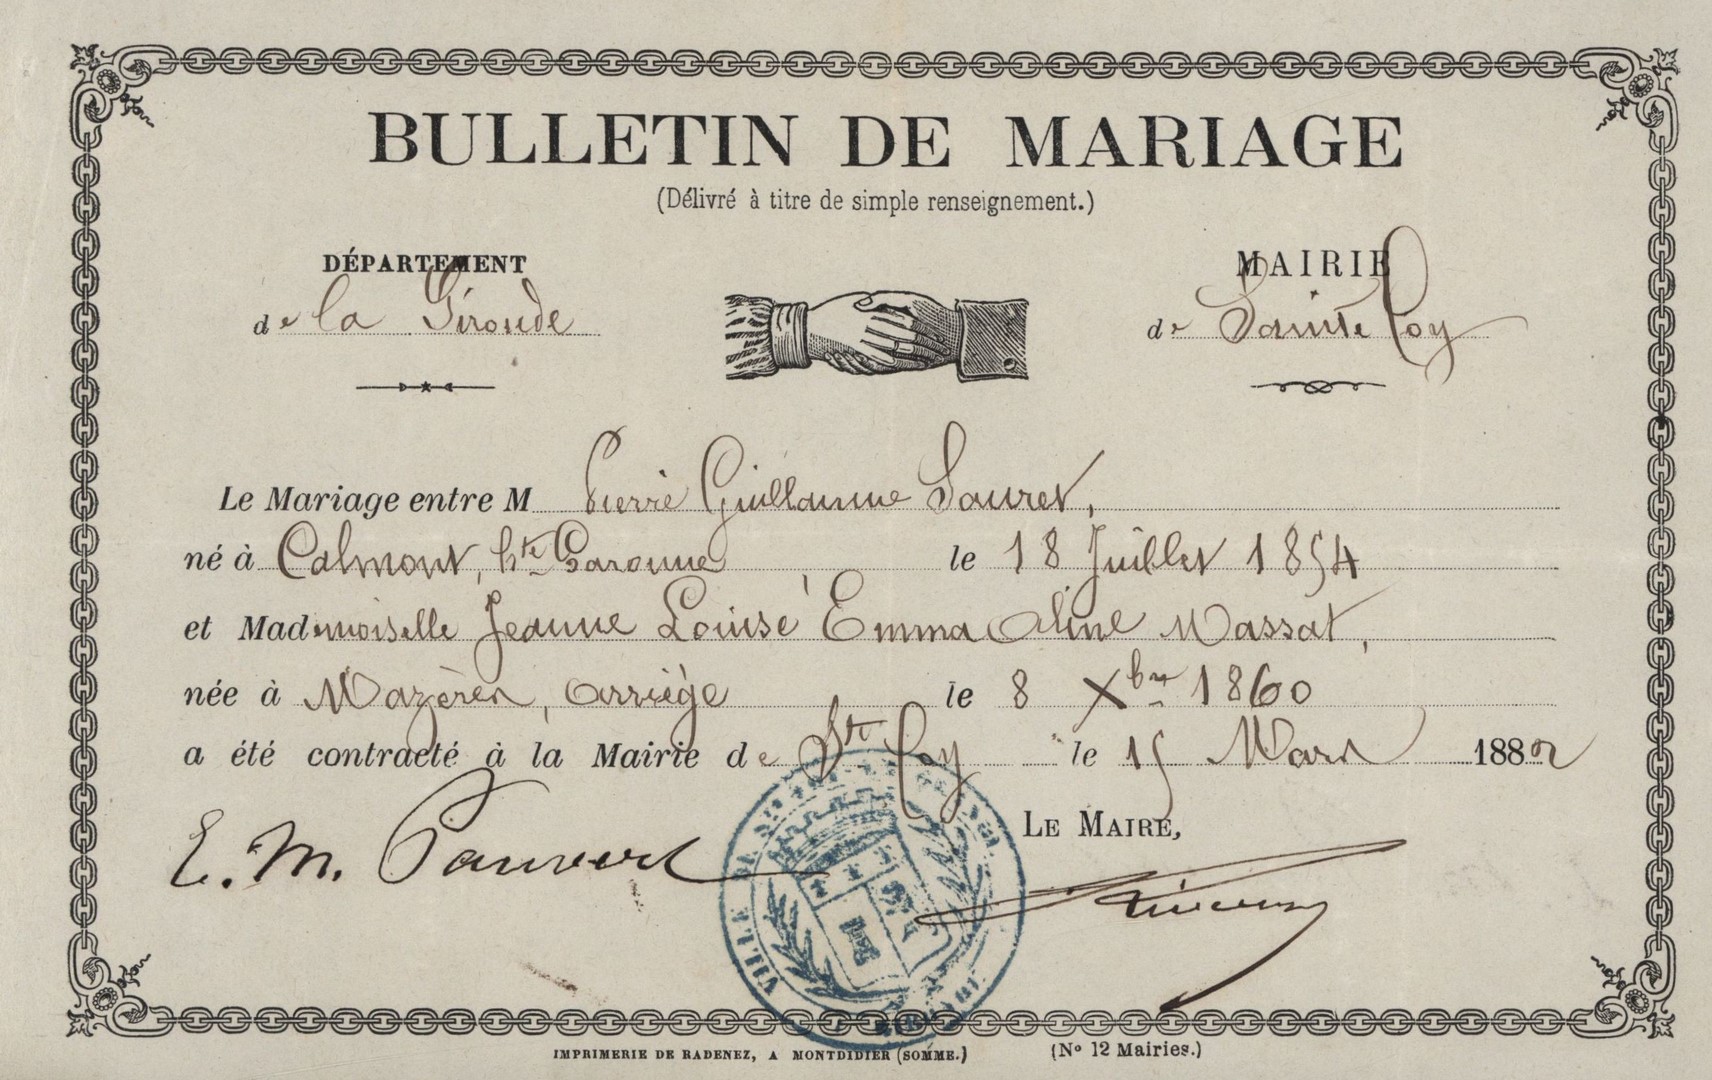 BULLETIN DE MARIAGE
(Délivré à titre de simple renseignement.)
DÉPARTEMENT
de la Gironde
MAIRIE
de Sainte Foy
Le Mariage entre M Pierre Guillaume Sauret,
né à Calmont, hte Garonne le 18 Juillet 1854
et Mademoiselle Jeanne Louise Emma Aline Massat,
née à Mazères, Arriège le 8 Xbre 1860
a été contracté à la Mairie de Ste Foy le 15 Mars 1882
LE MAIRE,
E. M. Pauvert
VILLE DE
IMPRIMERIE DE RADENEZ, A MONTDIDIER (SOMME.)
(No 12 Mairies.)